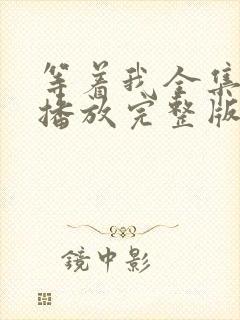 等着我全集
播放完整版
镜中影